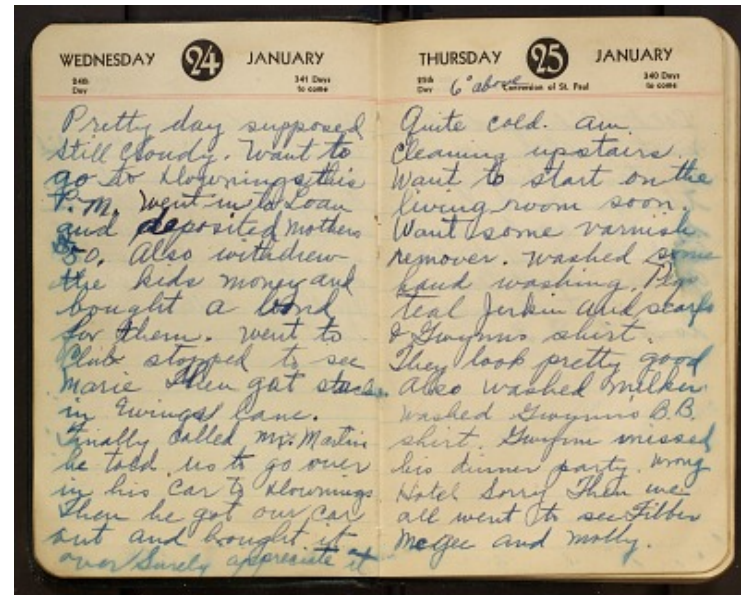 WEDNESDAY 24 JANUARY
24th Day
341 Days to come
Pretty day supposed
still cloudy. Want to
go to Downings this
P.M. Went in to Loan
and deposited Mothers
$50. Also withdrew
the kids money and
bought a bond
for them. Went to
Club stopped to see
Marie then got stuck
in Lane.
Finally called Mr. Martin
he told us to go over
in his car to Downings
Then he got our car
out and brought it
over Surely appreciate it
THURSDAY 25 JANUARY
25th Day
6° above
Conversion of St. Paul
340 Days to come
Quite cold. am
cleaning upstairs.
Want to start on the
living room soon.
Want some varnish
remover. Washed some
hand washing. My
teal Jerkin and scarfs
& Gwynns shirt.
They look pretty good
Also washed
washed Gwynn's B.B.
shirt. Gwynn missed
his dinner party. Wrong
Hotel Sorry Then we
all went to see Fibber
McGee and Molly.